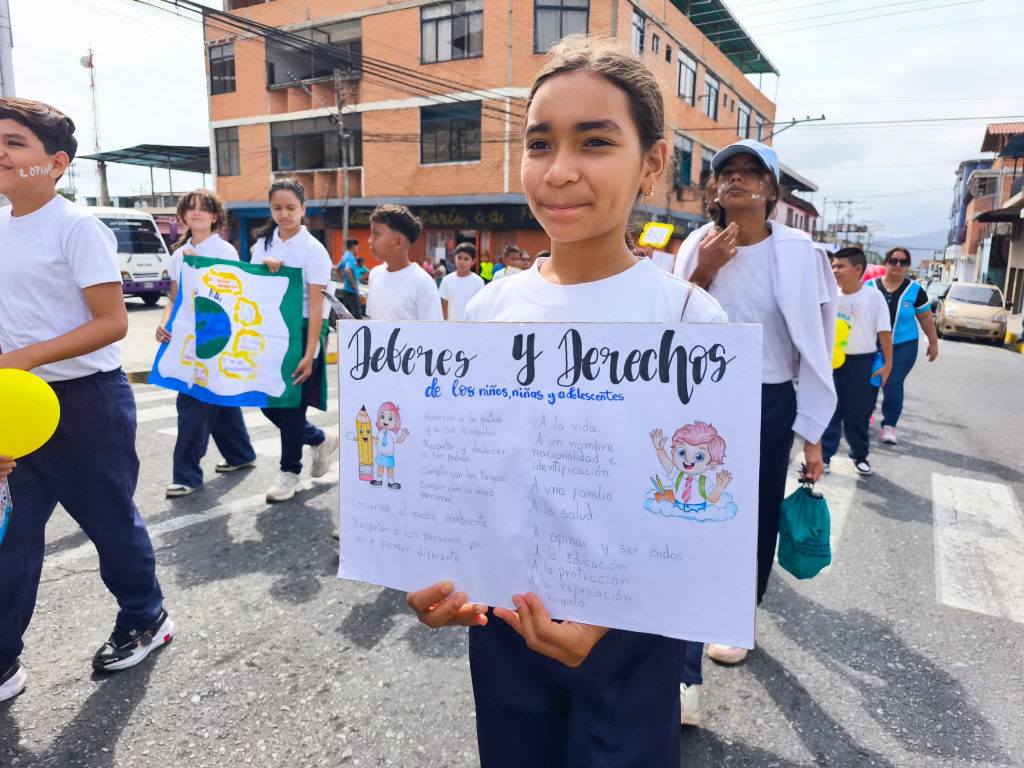 Deberes y Derechos
de los niños, niñas y adolescentes
Honrrar a la patria
y a sus simbolos
Respetar y obedecer
a sus padres
Cumplir con las tareas
Cumplir con su aseo
personal
Conservar el medio ambiente
Respetar a las personas que
ser o piensan diferente
A la vida.
A un nombre
nacionalidad e
identificación
A una familia
A la salud
A opinar y ser oidos
A la educación
A la protección
A la recreación
respeto
LOPNNA